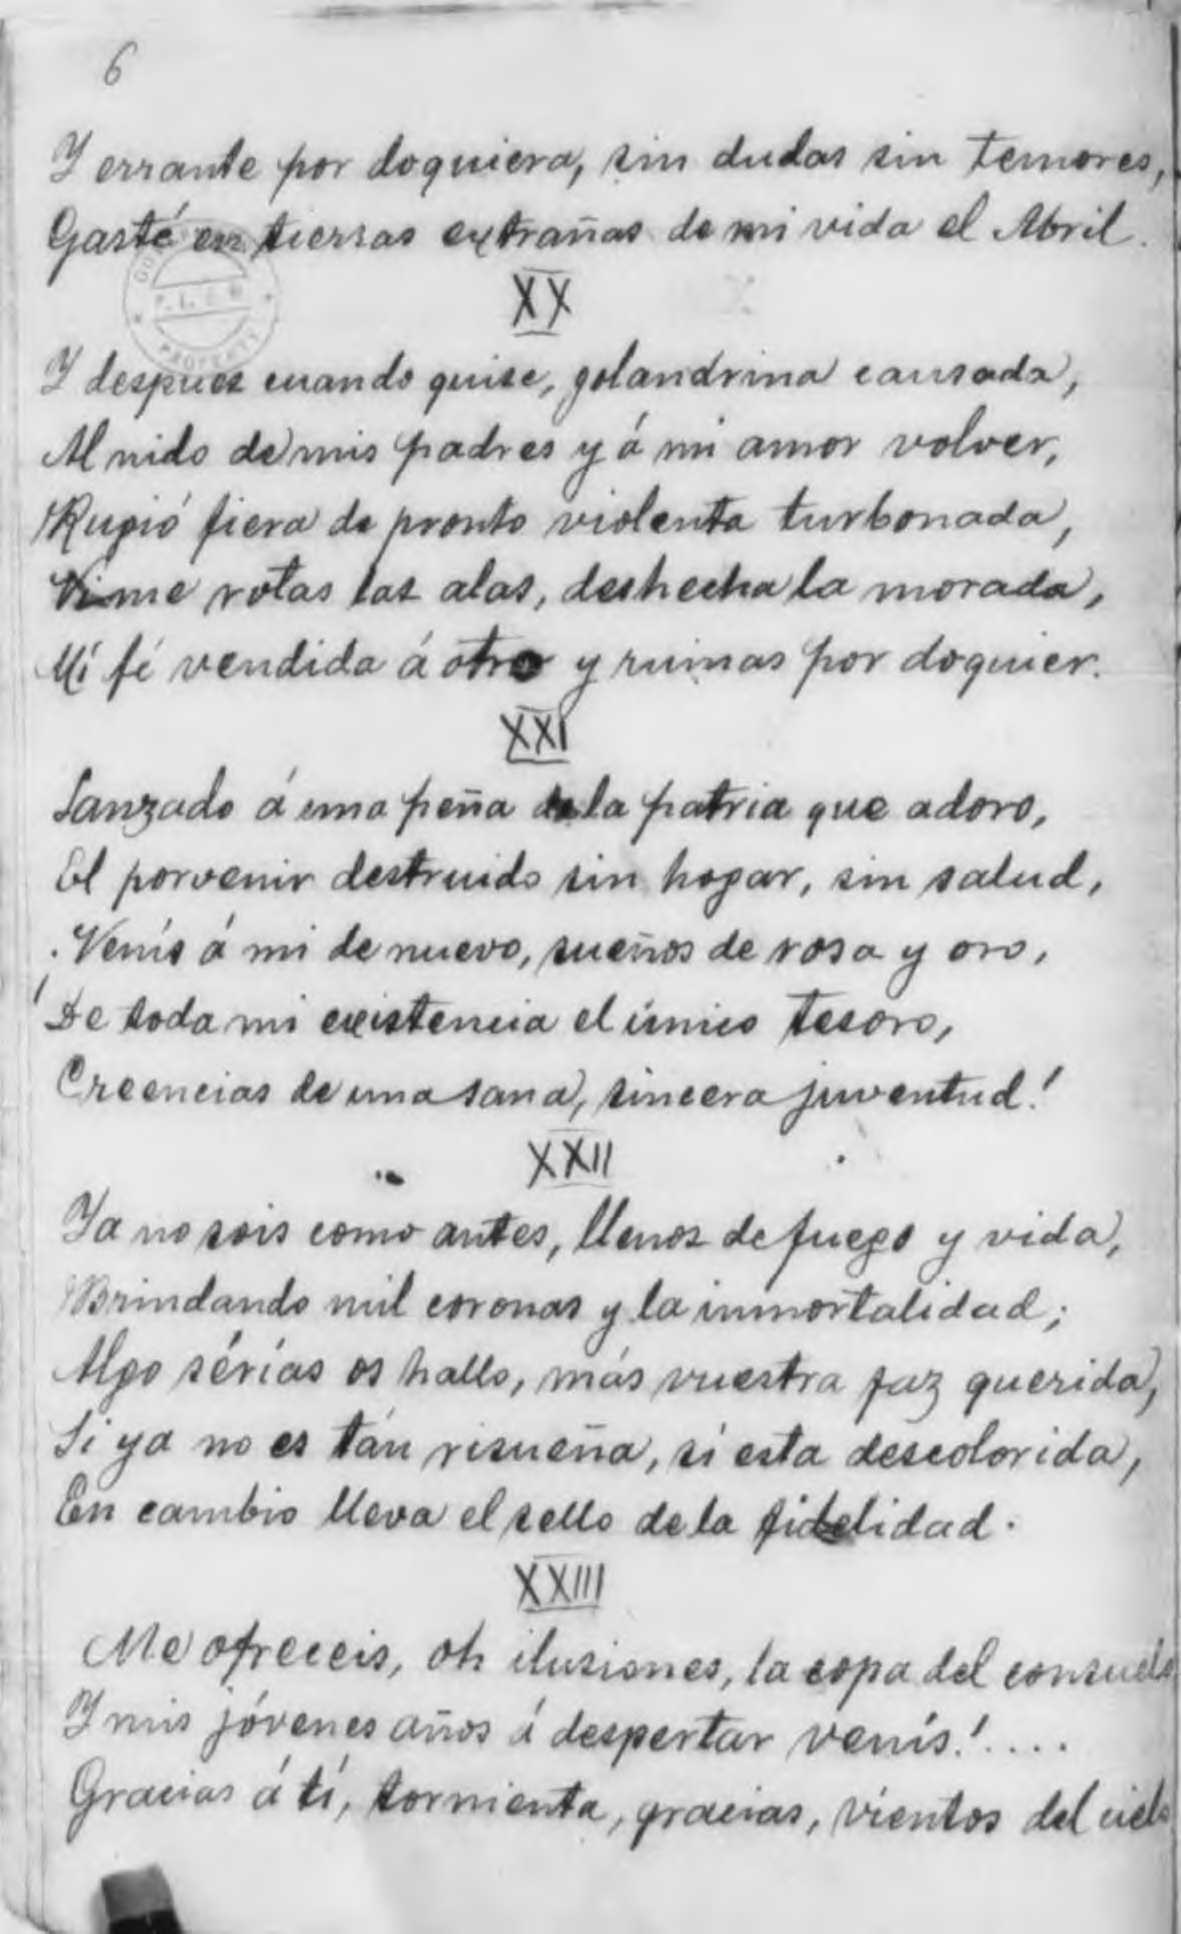 6
Y errante por doquiera, sin dudas sin temores,
Gasté en tierras extrañas de mi vida el Abril.
XX
Y despues cuando quise, golandrina cansada,
Al nido de mis padres y á mi amor volver,
Rugió fiera de pronto violenta turbonada,
Vime rotas las alas, deshecha la morada,
Mi fé vendida á otro y ruinas por doquier.
XXI
Lanzado á una peña de la patria que adoro,
El porvenir destruido sin hogar, sin salud,
Venís á mi de nuevo, sueños de rosa y oro,
De toda mi existencia el único tesoro,
Creencias de una sana, sincera juventud!
XXII
Ya no sois como antes, llenos de fuego y vida,
Brindando mil coronas y la inmortalidad;
Algo sérias os hallo, más vuestra faz querida,
Si ya no es tán risueña, si esta descolorida,
En cambio lleva el sello de la fidelidad.
XXIII
Me ofreceis, oh ilusiones, la copa del consuelo
Y mis jóvenes años á despertar venís!....
Gracias á tí, tormienta, gracias, vientos del cielo
PROPERTY